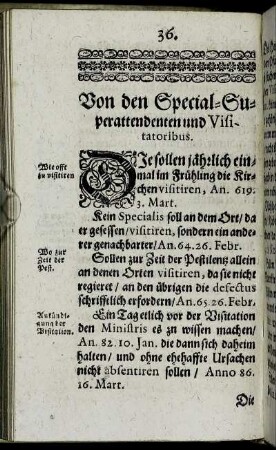 36.
Von den Special-Su-
perattendenten und Visi-
tatoribus.
Wie offt
zu visitiren
DIe sollen jährlich ein-
mal im Frühling die Kir-
chen visitiren, An. 619.
3. Mart.
Kein Specialis soll an dem Ort/ da
er gesessen/ visitiren, sondern ein ande
rer genachbarter/ An. 64. 26. Febr.
Wo zur
Zeit der
Pest.
Sollen zur Zeit der Pestilentz allein
an denen Orten visitiren, da sie nicht
regieret/ an den übrigen die defectus
schrifftlich erfordern/ An. 65. 26. Febr.
Ankündi-
gung der
Visitation.
Ein Tag etlich vor der Visitation
den Ministris es zu wissen machen/
An. 82. 10. Jan. die dann sich daheim
halten/ und ohne ehehaffte Ursachen
nicht absentiren sollen/ Anno 86.
16. Mart.
Die